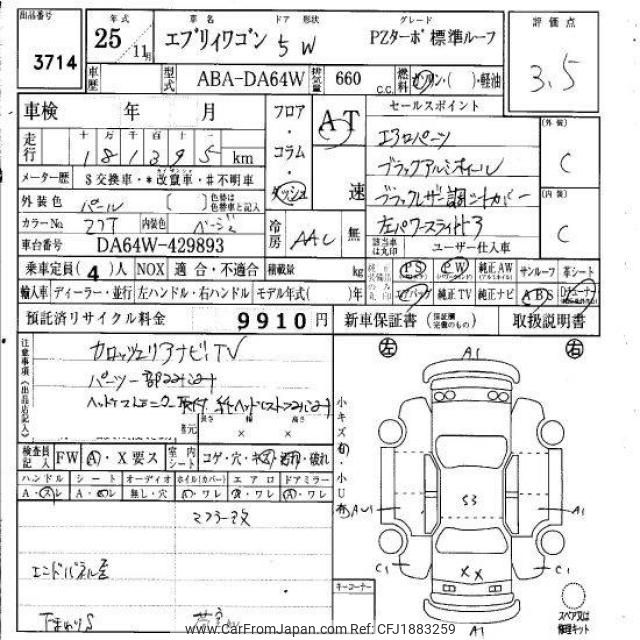 出品番号 年式 車名 ドア 形状 グレード 評価点
3714 25 11月 エブリイワゴン 5 W PZターボ標準ルーフ 3.5
車歴 型式 ABA-DA64W 排気量 660 C.C. 燃料 ガソリン・( )・軽油
車検 年 月 フロア・コラム・ダッシュ AT 速 セールスポイント
走行 十 万 千 百 十 一
1 8 1 3 9 5 km
エアロパーツ
ブラックアルミホイール
ブラックレザー調シートカバー
左パワースライドドア
(外装) C
(内装) C
メーター歴 $交換車・*改竄車・#不明車
外装色 パール ( ) 色替は色替車と記入
カラーNo. Z7T 内装色 ベージュ
冷房 AAC 無 該当車は丸印 ユーザー仕入車
車台番号 DA64W-429893
乗車定員(4)人 NOX 適合・不適合 積載量 kg
純正装備品の丸印 PS PW 純正AW サンルーフ 革シート
輸入車 ディーラー・並行 左ハンドル・右ハンドル モデル年式( )年
エアバッグ 純正TV 純正ナビ ABS
預託済リサイクル料金 9910円 新車保証書 (保証欄完備のもの) 取扱説明書
注意事項(出品店記入)
カロッツェリアナビTV
長さ 幅 高さ
× ×
検査員記入 FW A・X要ス 室内シート コゲ・穴・キズ・汚れ・破れ
ハンドル シート オーディオ ホイル(カバー) エアロ ドアミラー
A・スレ A・スレ 無し・穴 A・ワレ A・ワレ A・ワレ
マフラー改
エンドパネル歪
下まわりS
小キズ有・小U有
左 右
A1
AU1 S3 A1
C1 XX C1
A1
キーコーナー
スペア又は修理キット
www.CarFromJapan.com Ref: CFJ1883259